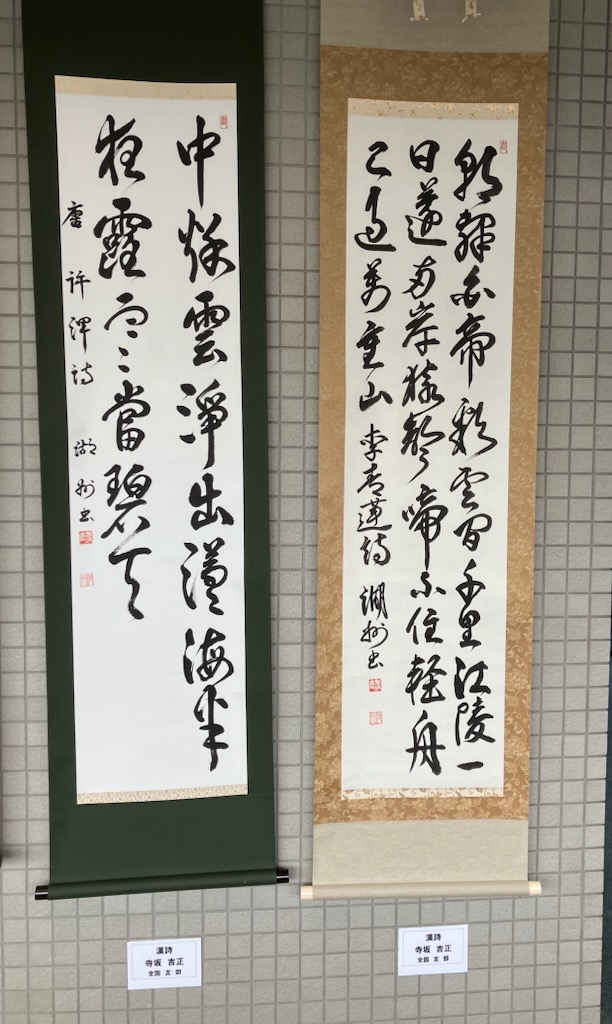 朝辭白帝彩雲間千里江陵一
日還両岸猿聲啼不住軽舟
已過萬重山 李青蓮詩 湖州書
中秋雲淨出滄海半
夜露寒當碧天
唐 許渾詩 湖州書
漢詩
寺坂 吉正
全国 支部
漢詩
寺坂 吉正
全国 支部